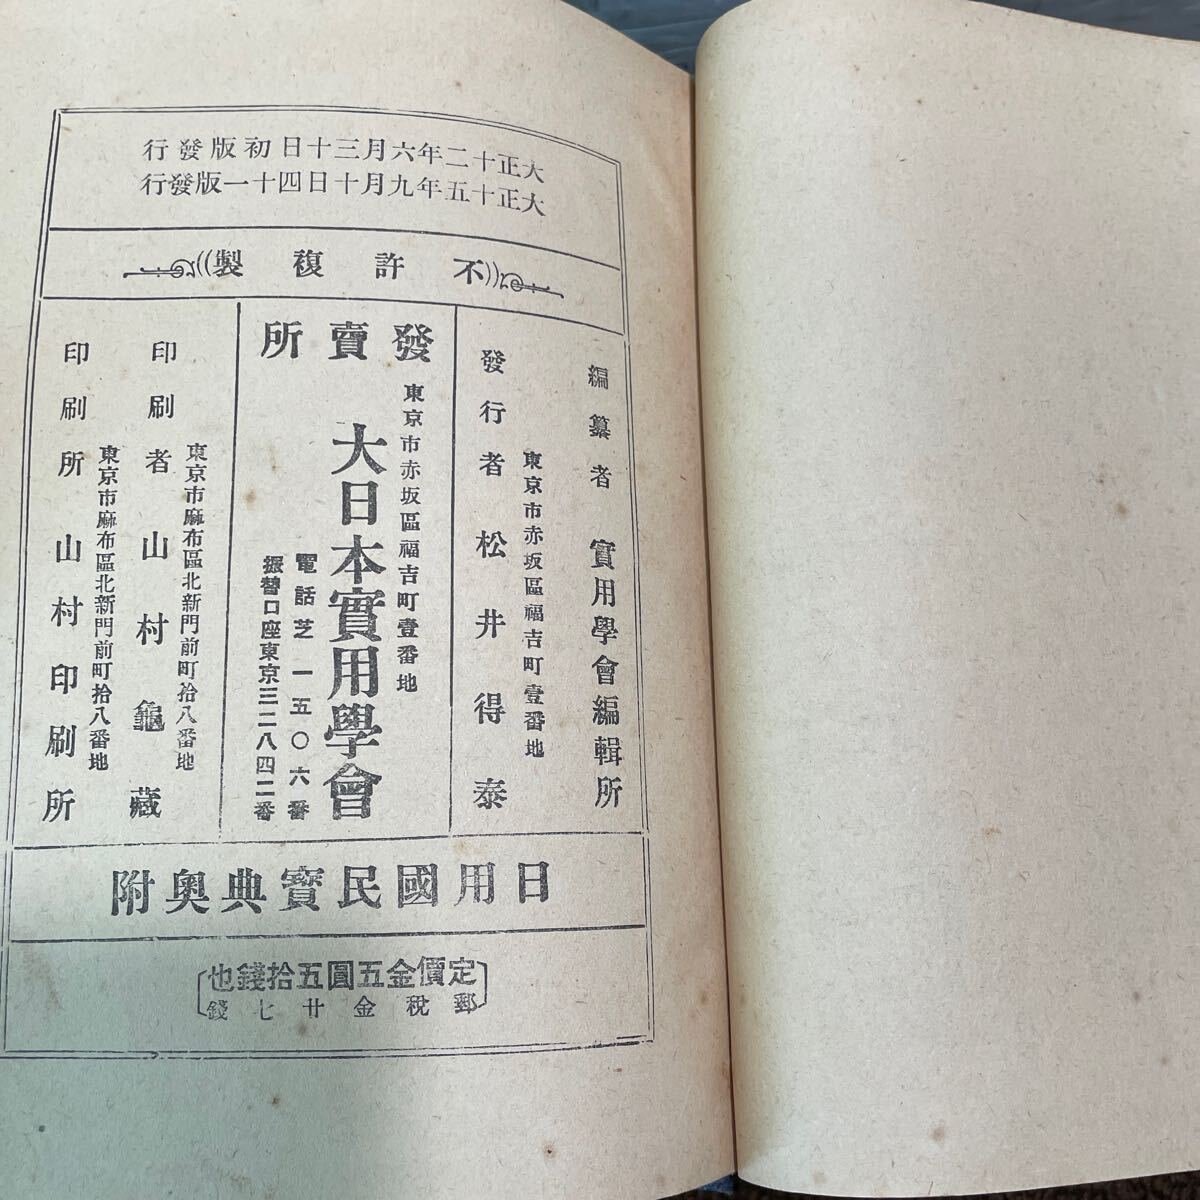 大正十二年六月三十日初版發行
大正十五年九月十日四十一版發行
不許複製
編纂者 實用學會編輯所
東京市赤坂區福吉町壹番地
發行者 松井得泰
發賣所
東京市赤坂區福吉町壹番地
大日本實用學會
電話芝一五〇六番
振替口座東京三二八四二番
東京市麻布區北新門前町拾八番地
印刷者 山村龜藏
東京市麻布區北新門前町拾八番地
印刷所 山村印刷所
日用國民寳典奥附
定價金五圓五拾錢也
郵稅金廿七錢